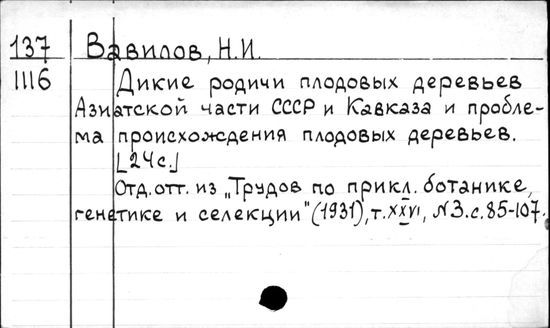 137 Вавилов, Н.И.
1116 Дикие родичи плодовых деревьев
Азиатской части СССР и Кавказа и пробле-
ма происхождения плодовых деревьев.
[24с.]
Отд. отт. из „Трудов по прикл. ботанике,
генетике и селекции" (1931), т. XXVI, №3. с. 85-107.